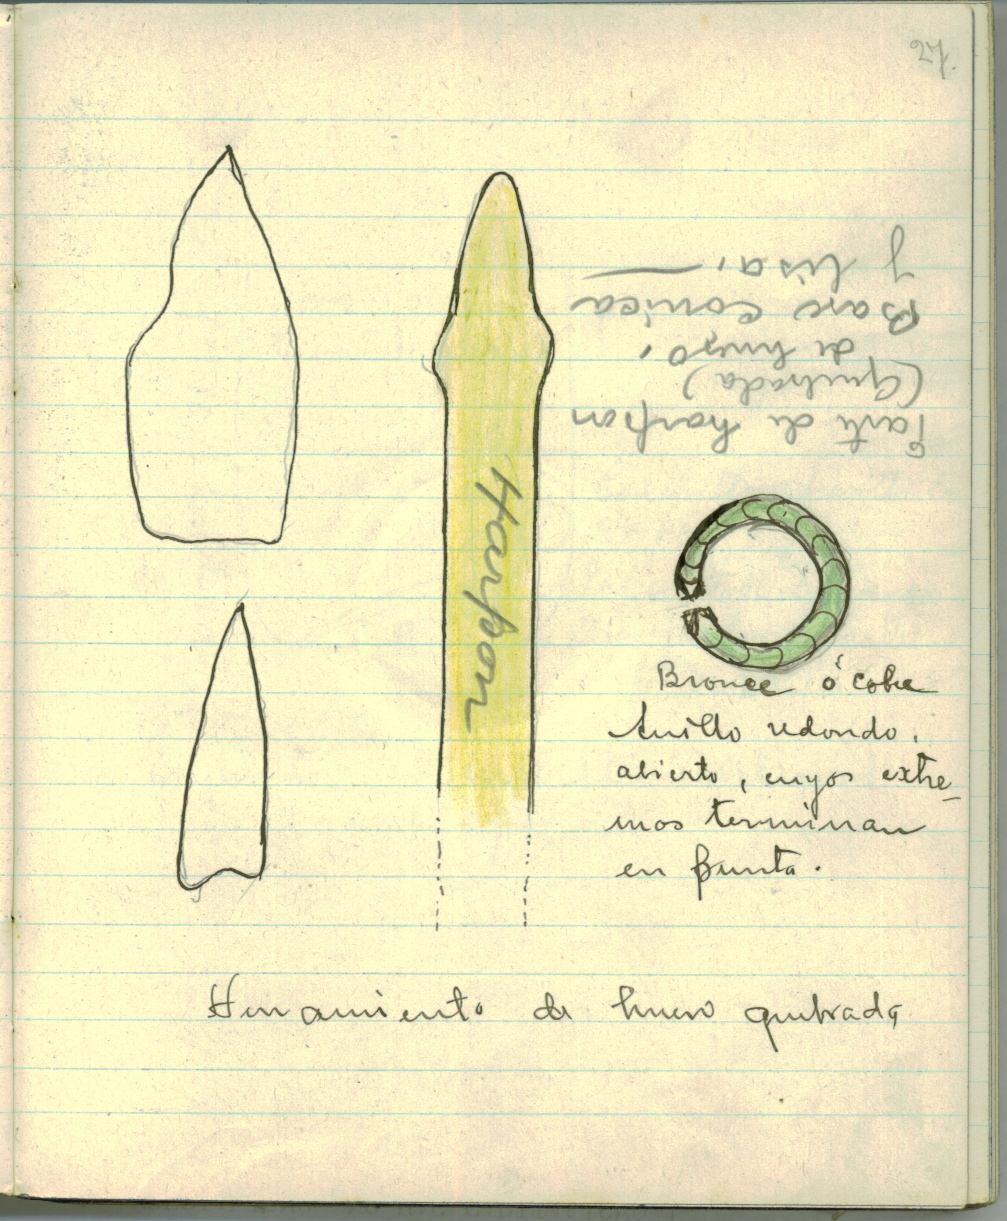 27.
Parte de harpon
(Quebrada)
de hueso,
Base conica
y lisa,
Harpon
Bronce ó cobre
Anillo redondo,
abierto, cuyos extre-
mos terminan
en punta.
de hueso quebrada